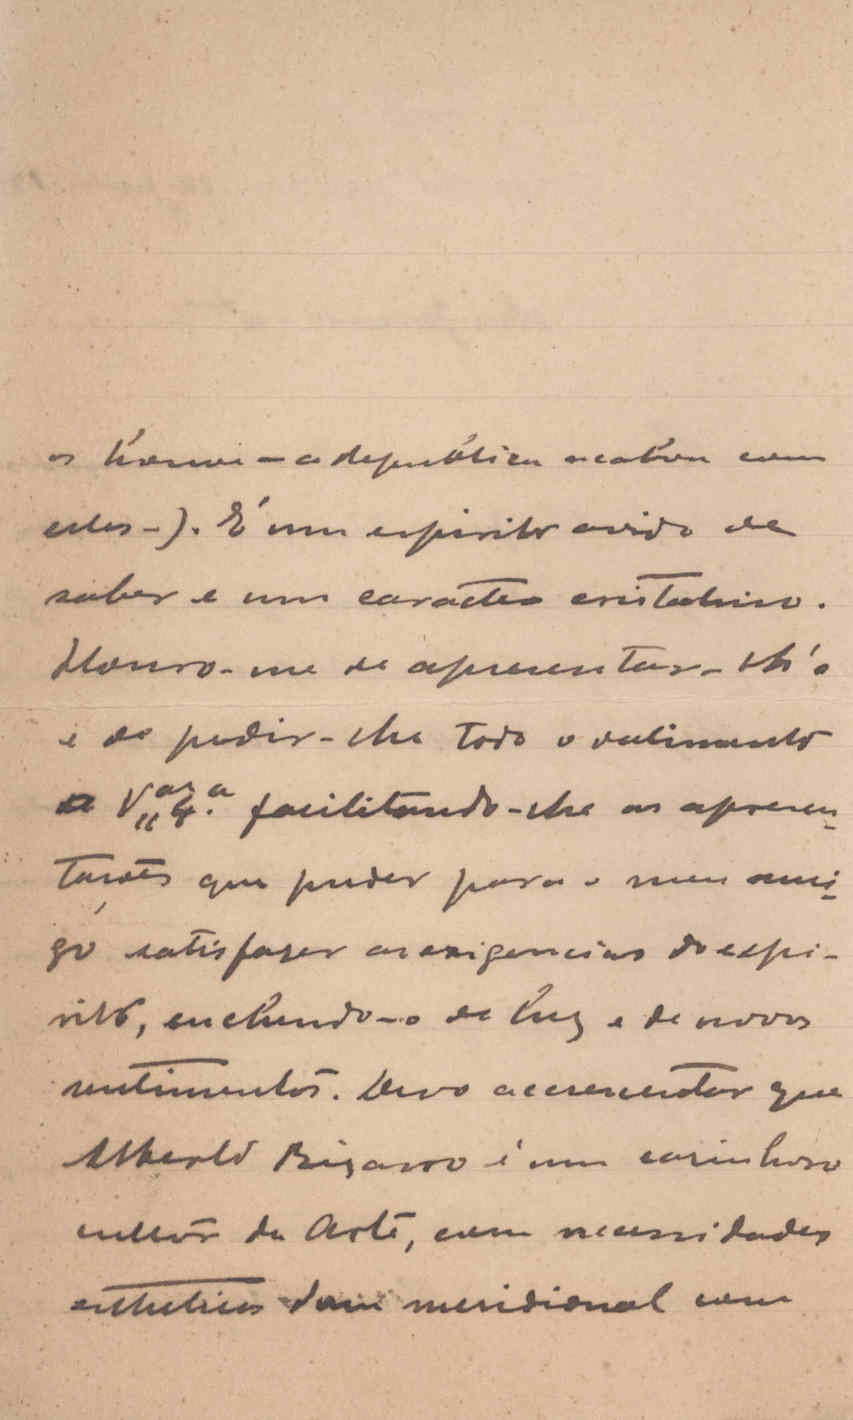 os houve — a republica acabou com
estes -). É um espirito avido de
saber e um caracter cristalino.
Honro-me de apresentar-lh'o
e de pedir-lhe todo o valimento
a V. Ex.ª facilitando-lhe as apresen-
tações que puder para o meu ami-
go satisfazer as exigencias do espi-
rito, enchendo-o de luz e de novos
sentimentos. Devo accrescentar que
Alberto Bizarro é um carinhoso
cultor da Arte, com necessidades
estheticas dum meridional com